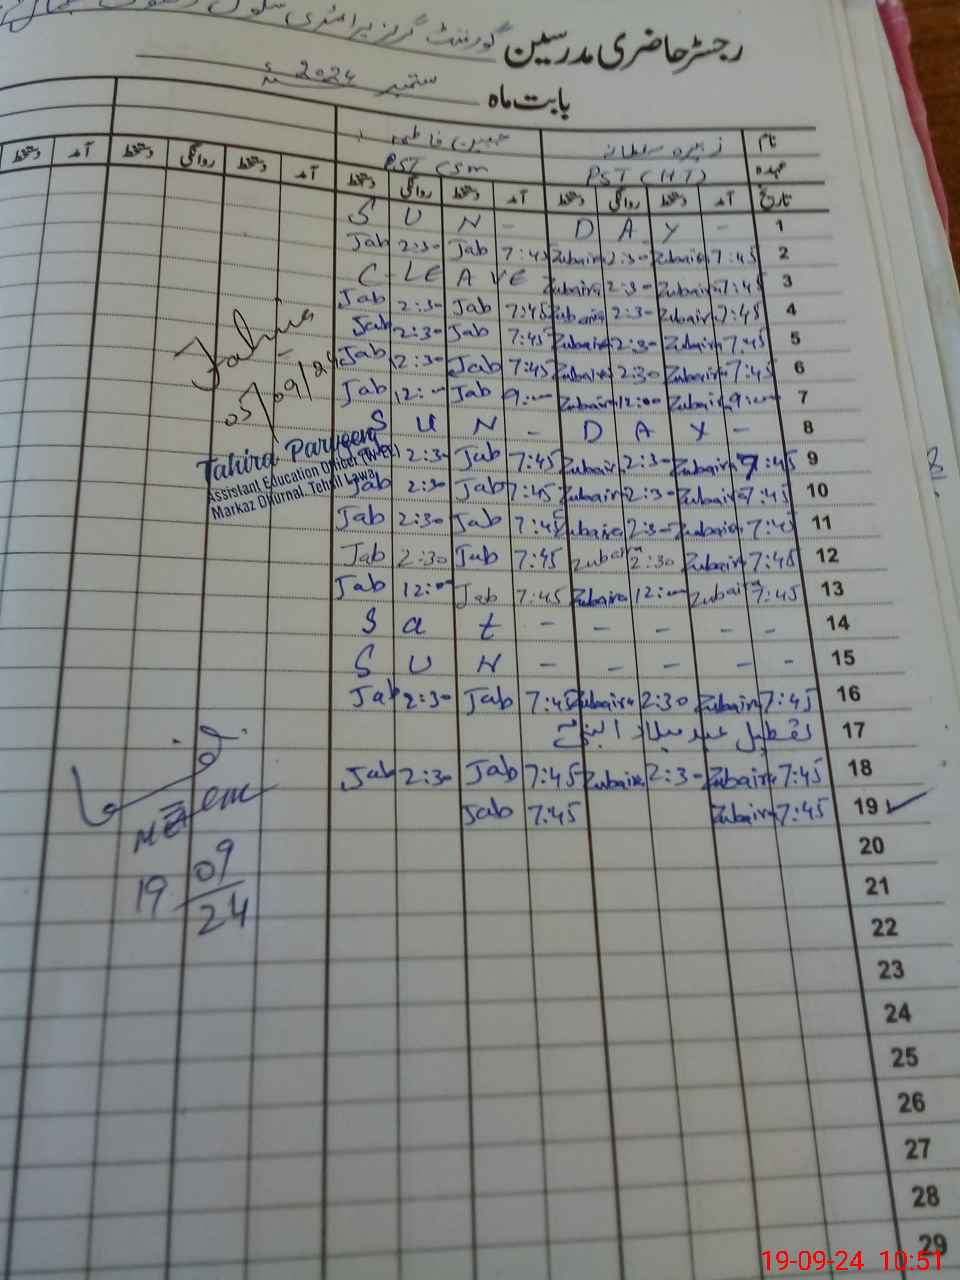 رجسٹر حاضری مدرسین گورنمنٹ گرلز پرائمری سکول
بابت ماہ ستمبر 2024ء
نام زبیرہ سلطانہ جبین فاطمہ
عہدہ PST (HT) PST (SM
تاریخ آمد دستخط روانگی دستخط آمد دستخط روانگی دستخط آمد دستخط روانگی دستخط آمد دستخط
S U N - D A Y - 1
Jab 2:30 Jab 7:45 Zubaira 2:30 Zubaira 7:45 2
C-LE A VE Zubaira 2:30 Zubaira 7:45 3
Jab 2:30 Jab 7:45 Zubaira 2:30 Zubaira 7:45 4
Jab 2:30 Jab 7:45 Zubaira 2:30 Zubaira 7:45 5
Jab 2:30 Jab 7:45 Zubaira 2:30 Zubaira 7:45 6
Jab 12:00 Jab 9:00 Zubaira 12:00 Zubaira 9:00 7
S U N - D A Y - 8
2:30 Jab 7:45 Zubaira 2:30 Zubaira 7:45 9
Jab 2:30 Jab 7:45 Zubaira 2:30 Zubaira 7:45 10
Jab 2:30 Jab 7:45 Zubaira 2:30 Zubaira 7:45 11
Jab 2:30 Jab 7:45 Zubaira 2:30 Zubaira 7:45 12
Jab 12:00 Jab 7:45 Zubaira 12:00 Zubaira 7:45 13
S a t - - - - - 14
S U N - - - - - 15
Jab 2:30 Jab 7:45 Zubaira 2:30 Zubaira 7:45 16
تعطیل عید میلاد النبیؐ 17
Jab 2:30 Jab 7:45 Zubaira 2:30 Zubaira 7:45 18
Jab 7:45 Zubaira 7:45 19
20
21
22
23
24
25
26
27
28
29
Tahira
05/09/24
Tahira Parveen
Assistant Education Officer (W-EE)
Markaz Dhurnal, Tehsil Lawa
19 09/24
19-09-24 10:51